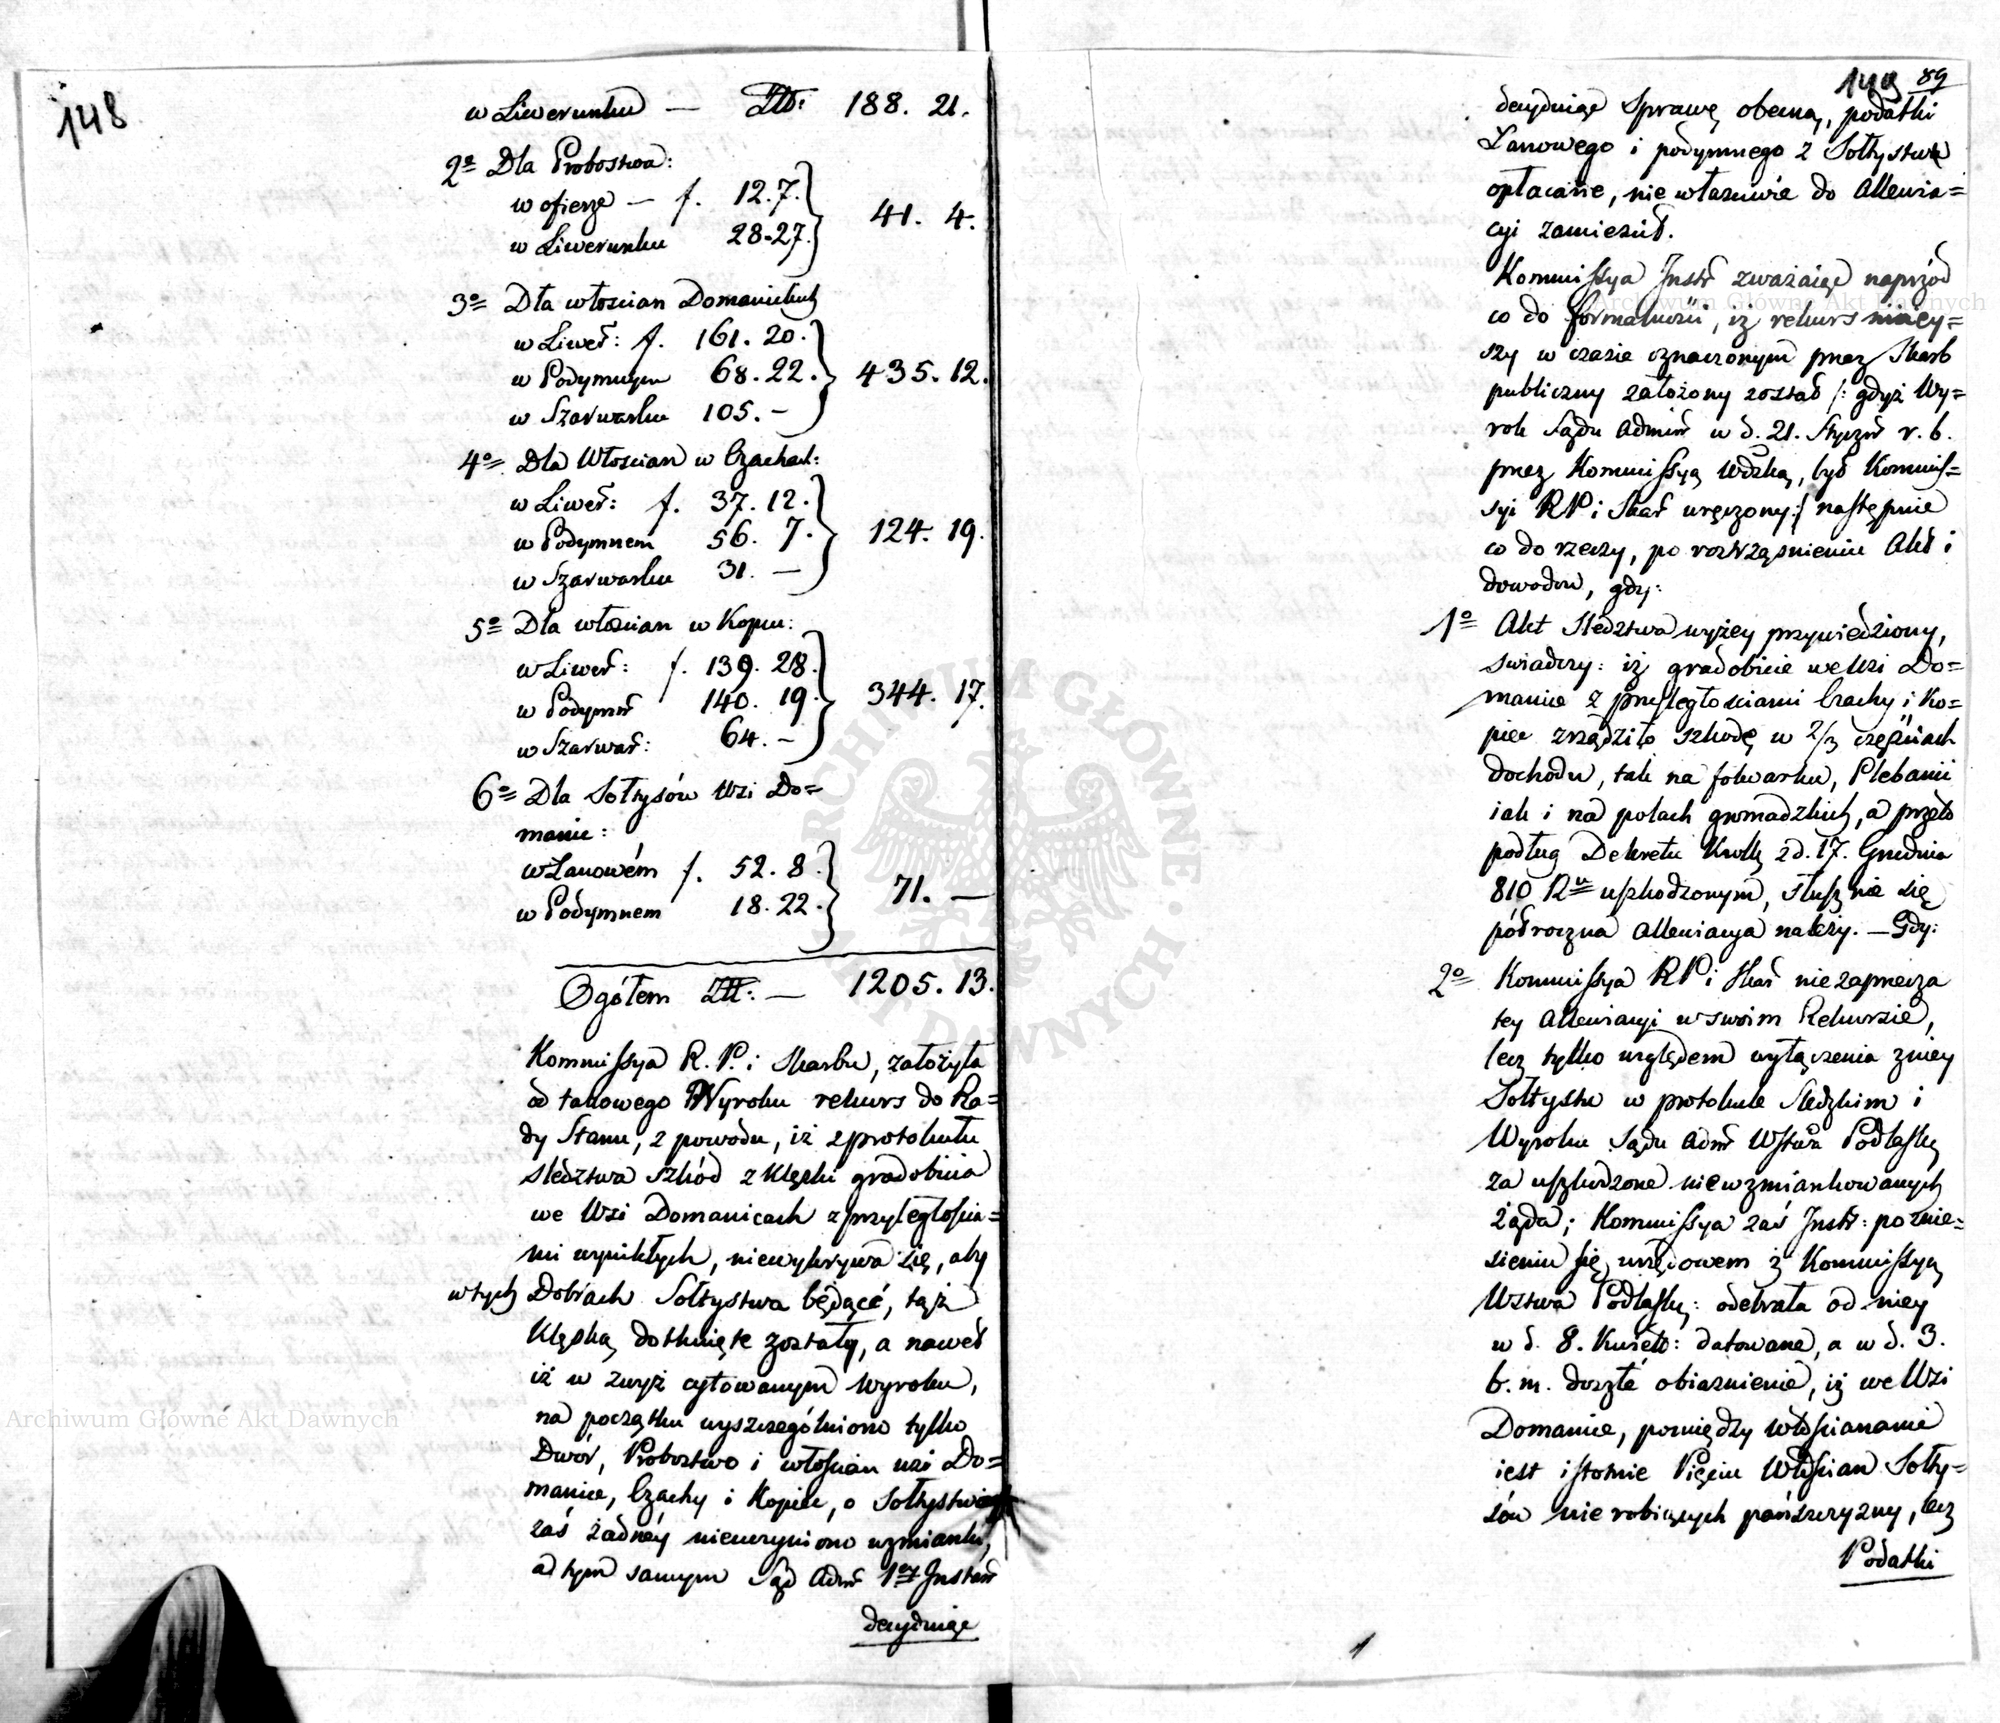 148
w Liwerunku — Złł: 188. 21.
2º Dla Probostwa:
w ofierze — f. 12. 7.
w Liwerunku 28. 27. 41. 4.
3º Dla włoscian Domanickich
w Liwer: f. 161. 20.
w Podymnym 68. 22. 435. 12.
w Szarwarku 105. —
4º Dla Włoscian w Czachach:
w Liwer: f. 37. 12.
w Podymnem 56. 7. 124. 19.
w Szarwarku 31. —
5º Dla włoscian w Kopcu:
w Liwer: f. 139. 28.
w Podymn 140. 19. 344. 17.
w Szarwar: 64. —
6º Dla Sołtysów Wsi Do=
manic:
w Łanowém f. 52. 8.
w Podymnem 18. 22. 71. —
Ogółem Złł: — 1205. 13.
Kommissya R. P. i Skarbu, założyła
od takowego Wyroku rekurs do Ra=
dy Stanu, z powodu, iż z protokułu
sledztwa szkód z klęski gradobicia
we Wsi Domanicach z przyległościa=
mi wynikłych, niewykrywa się, aby
w tych Dobrach Sołtystwa będące, tąż
klęską dotknięte zostały, a nawet
iż w zwyż cytowanym wyroku,
na początku wyszczególniono tylko
Dwór, Probostwo i włościan wsi Do=
manice, Czachy i Kopiec, o Sołtystwie
zaś żadnéy nieuczyniono wzmianki,
a tym samym Sąd Admr 1éy Instan
decyduiąc
149 89
decyduiąc Sprawę obecną, podatki
Łanowego i podymnego z Sołtystw
opłacane, niewłasciwie do Allewia=
cyi zamieścił.
Kommissya Instr zważaiąc naprzód
co do formalności, iż rekurs ninieÿ=
szy w czasie oznaczonym przez Skarb
publiczny założony został /: gdyż Wy=
rok Sądu Admin w d. 21. Stycznr r. b.
przez Kommissyą Wdzką, był Kommis=
syi RP i Skar wręczony :/ następnie
co do rzeczy, po roztrząsnieniu Akt i
dowodów, gdy:
1º Akt sledztwa wyżey przywiedziony,
swiadczy: iż gradobicie we Wsi Do=
manice z przyległosciami Czachy i Ko=
piec zrządziło szkodę w 2/3 częściach
dochodu, tak na folwarku, Plebanii
iak i na polach gromadzkich, a przeto
podług Dekretu Krolłg z d. 17. Grudnia
810 Ru uszkodzonym, słusznie się
półroczna allewiacya należy. — Gdy:
2º Kommissya RP i Skar niezaprzecza
tey Allewiacyi w swoim Rekursie,
lecz tylko względem wyłączenia zniey
Sołtystw w protokule sledzkim i
Wyroku Sądu Admr Wstwa Podlaskg
za uszkodzone niewzmiankowanych
żąda; Kommissya zaś Instr: po znie=
sieniu się urzędowem z Kommissyą
Wstwa Podlaskg: odebrała od niey
w d. 8. Kwiet: datowane, a w d. 3.
b. m. doszłe obiasnienie, iż we Wsi
Domanice, pomiędzy włościanami
iest istotnie Pięciu Włościan Sołty=
sów nie robiących pańszczyzny, lecz
Podatki